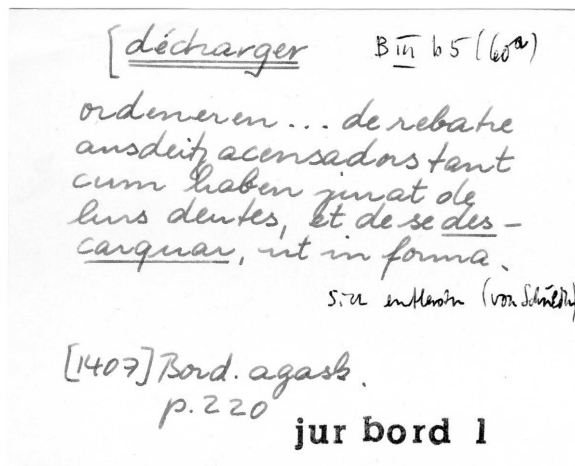 [décharger B III b 5 (60a)
ordeneren ... de rebatre
ausdeitz acensadors tant
cum haben jurat de
lurs deutes, et de se des-
carguar, ut in forma.
sich entlasten (von Schulden)
[1407] Bord. agask.
p. 220
jur bord 1